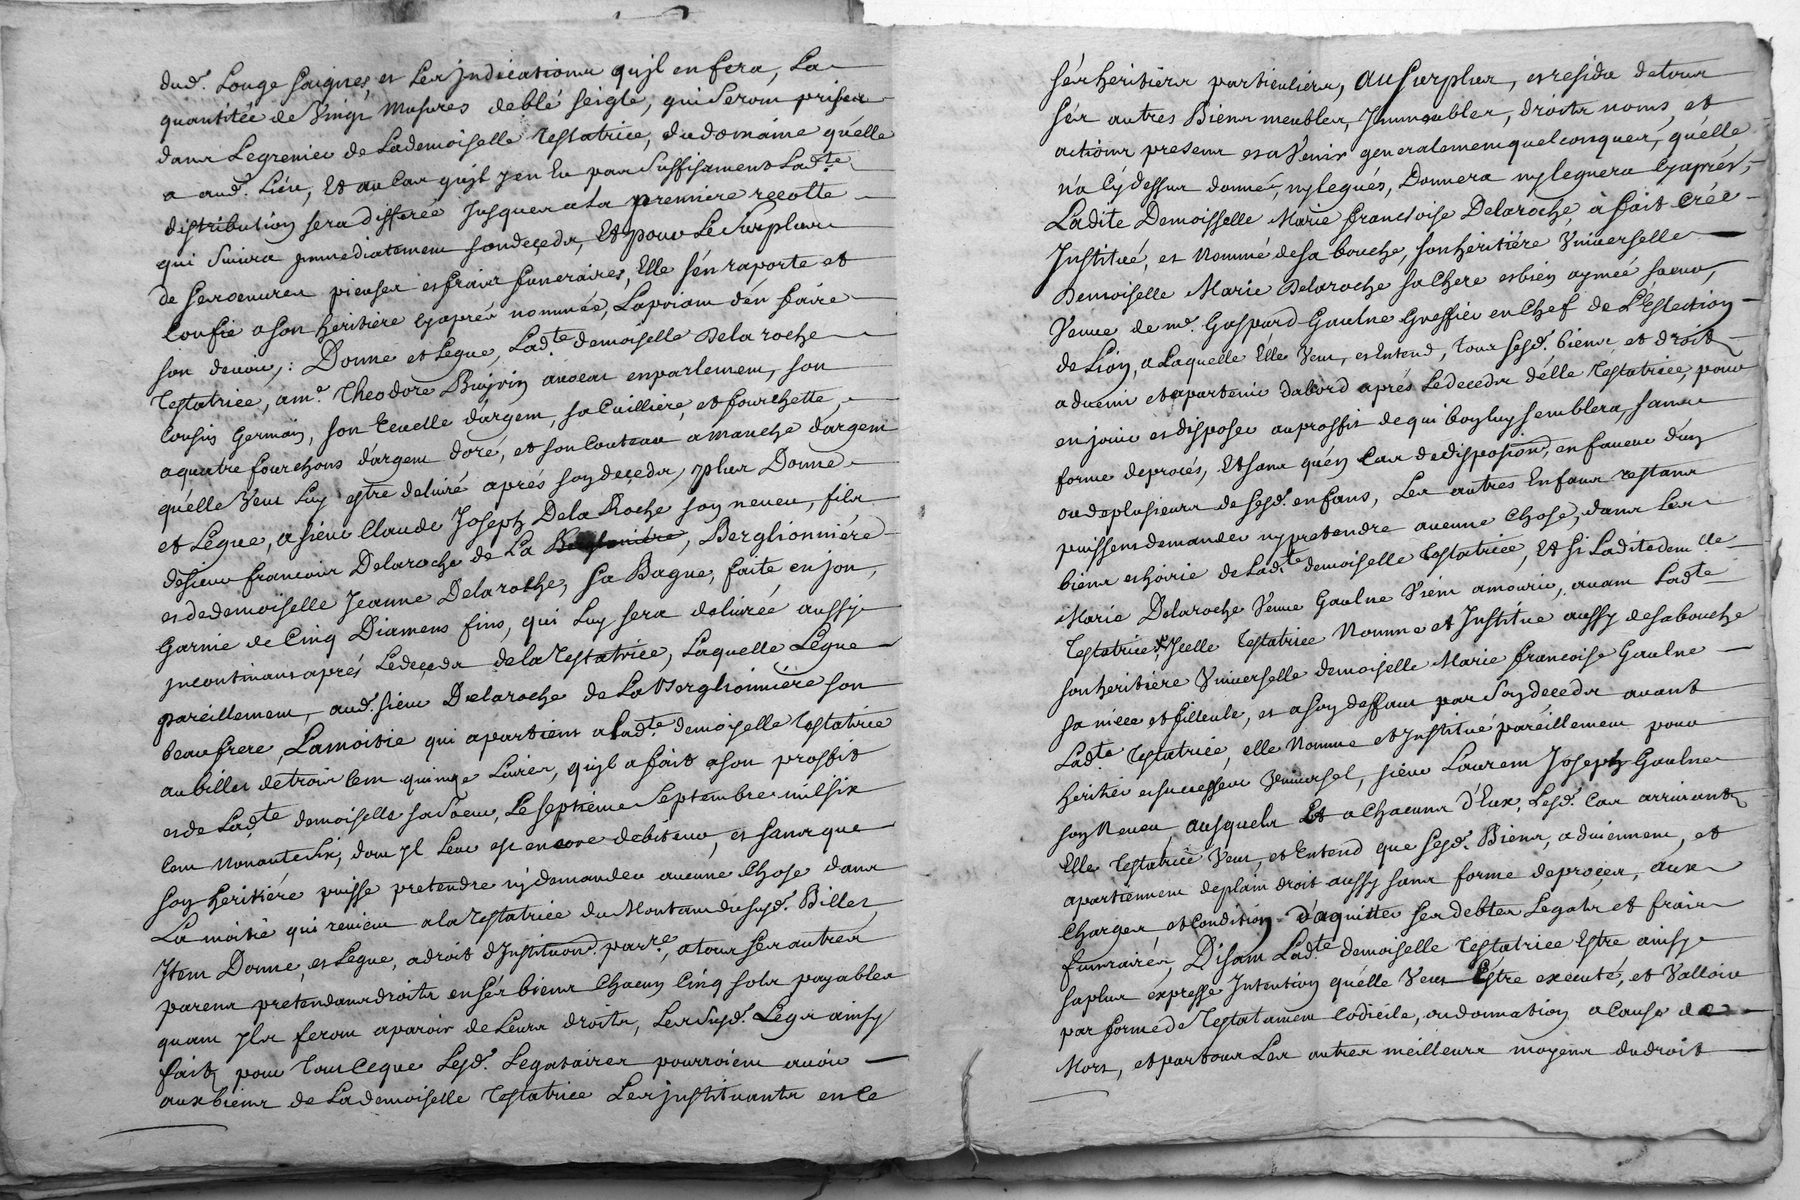 dud.t Longe Saignes, et les Indications qu'jl en fera, La
quantitée de Vingt Mesures de blé seigle, qui seront prises
dans Le grenier de Lademoiselle Testatrice, du domaine qu'elle
a aud.t Lieu, Et au Cas qu'jl n'en Eu pas Suffisament Lad.te
distribution sera differée Jusques a la premiere recolte
qui Suivra jmmediatement son deceds, Et pour Le surplus
de ses oeuvres pieuses et fraix funeraires, Elle s'en raporte et
Confie a son heritiere cyaprés nommée, La priant d'en faire
son devoir,: Donne et Legue, Lad.te demoiselle Delaroche
Testatrice, a m.e Theodore Brojrin avocat en parlement, son
Cousin Germain, son Ecuelle d'argent, sa Cuilliere, et fourchette,
a quatre fourchons d'argent doré, et son Couteau a manche d'argent
qu'elle Veut Luy estre delivré aprés son deceds, plus Donne
et Legue, a sieur Claude Joseph De la Roche son neveu, fils
de sieur francois Delaroche de La Berglionniére
et de demoiselle Jeanne Delaroche, sa Bague, faite en jon,
Garnie de Cinq Diamens fins, qui Luy sera delivrée aussy
jncontinant aprés Le deceds de la Testatrice, Laquelle Legue
pareillement, aud. sieur Delaroche de La Berglionniére son
beaufrere, La moitie qui apartient a Lad.te demoiselle Testatrice
au billet de trois Cent quinze Livres, qu'jl a fait a son proffit
et de Lad.te demoiselle sa soeur, Le septième Septembre mil six
Cent Nonante Six, dont jl Leur est encore debiteur, et sans que
son heritiére puisse pretendre nj demander aucune Chose dans
La moitié qui revient a la Testatrice du Montant du susd.t Billet,
Item Donne, et Legue, a droit d'Instituon. par.re, a tous ses autres
parens pretendans droits en ses biens Chacun Cinq sols payables
quant jls feront aparoir de Leurs droits, Les susd.t Legs ainsy
faits pour Tout Ce que Lesd.t Legataires pourroient avoir
aux biens de La demoiselle Testatrice Les jnstituants en Ce
sés heritiers particuliers, Au surplus, et residu de tous
sés autres Biens meubles, Jmmeubles, droits noms, et
actions presens et a Venir generalement quelconques, qu'elle
n'a Cÿ dessus donné, ny legués, Donnera ny leguera Cyaprés,
Ladite Demoisselle Marie francsoise Delaroche, à fait Crée
Jnstitué, et Nommé de sa bouche, son heritiére Vniverselle
Demoiselle Marie Delaroche sa Chere et bien aymée soeur,
Veuve de m.e Gaspard Gaulne Greffier en Chef de L'Eslection
de Lion, a Laquelle Elle Veut, et Entend, Tous sesd.t biens et droits
advenir et apartenir dabord aprés Le deceds d'elle Testatrice, pour
en jouir et disposer au proffit de qui bon luy semblera, sans
forme de procés, Et sans qu'en Cas de disposion, en faveur d'un
ou de plusieurs de sesd.t enfans, Les autres Enfans restans
puissent demander ny pretendre aucune Chose, dans Les
biens et hoirie de Lad.te demoiselle Testatrice, Et si Laditedem.lle
Marie Delaroche Veuve Gaulne Vient a mourir, avant Lad.te
Testatrice, Jcelle Testatrice Nomme et Jnstitue aussy de sa bouche
son heritiére Vniverselle demoiselle Marie francoise Gaulne
sa niéce et filleule, et a son deffaut par son deceds avant
Lad.te Testatrice, elle Nomme et jnstitue pareillement pour
heritier et successeur Vniversel, sieur Laurent Joseph Gaulne
son Neveu Ausquels Et a Chacuns d'Eux, Lesd.t Cas arrivants
Elle Testatrice Veut, et Entend que sesd.t Biens, adviennent, et
apartiennent de plain droit aussy sans forme de procés, aux
Charges et Condition d'aquitter ses debtes Legats et fraix
funeraires, Disant Lad.te demoiselle Testatrice Estre ainsy
sa plus expresse Intention qu'elle Veut Estre executé, et Valloir
par forme de Testatament Codicile, ou donnation a Cause de
Mort, et par tous Les autres meilleurs moyens du droit